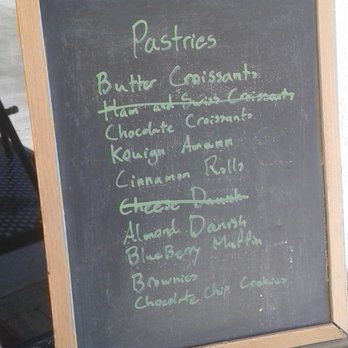 Pastries
Butter Croissants
Ham and Swiss Croissants
Chocolate Croissants
Kouign Amann
Cinnamon Rolls
Cheese Danish
Almond Danish
BlueBerry Muffin
Brownies
Chocolate Chip Cookies